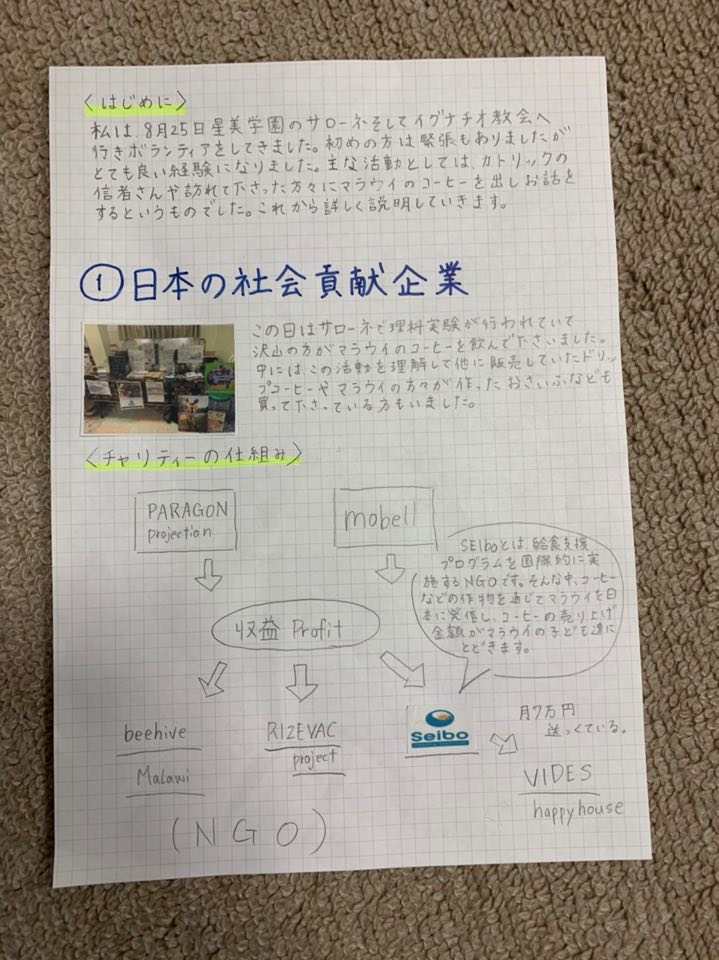 〈はじめに〉
私は、8月25日星美学園のサローネそしてイグナチオ教会へ
行きボランティアをしてきました。初めの方は緊張もありましたが
とても良い経験になりました。主な活動としては、カトリックの
信者さんや訪れて下さった方々にマラウイのコーヒーを出しお話を
するというものでした。これから詳しく説明していきます。
①日本の社会貢献企業
この日はサローネで理科実験が行われていて
沢山の方がマラウイのコーヒーを飲んで下さいました。
中には、この活動を理解して他に販売していたドリッ
プコーヒーやマラウイの方々が作ったおさいふなども
買って下さっている方もいました。
〈チャリティーの仕組み〉
PARAGON
projection
mobell
SEIboとは、給食支援
プログラムを国際的に実
施するNGOです。そんな中、コーヒー
などの作物を通じてマラウイを日
本に発信し、コーヒーの売り上げ
金額がマラウイの子ども達に
とどきます。
収益 Profit
beehive
Malawi
RIZEVAC
project
Seibo
月7万円
送っくている。
VIDES
happyhouse
(NGO)